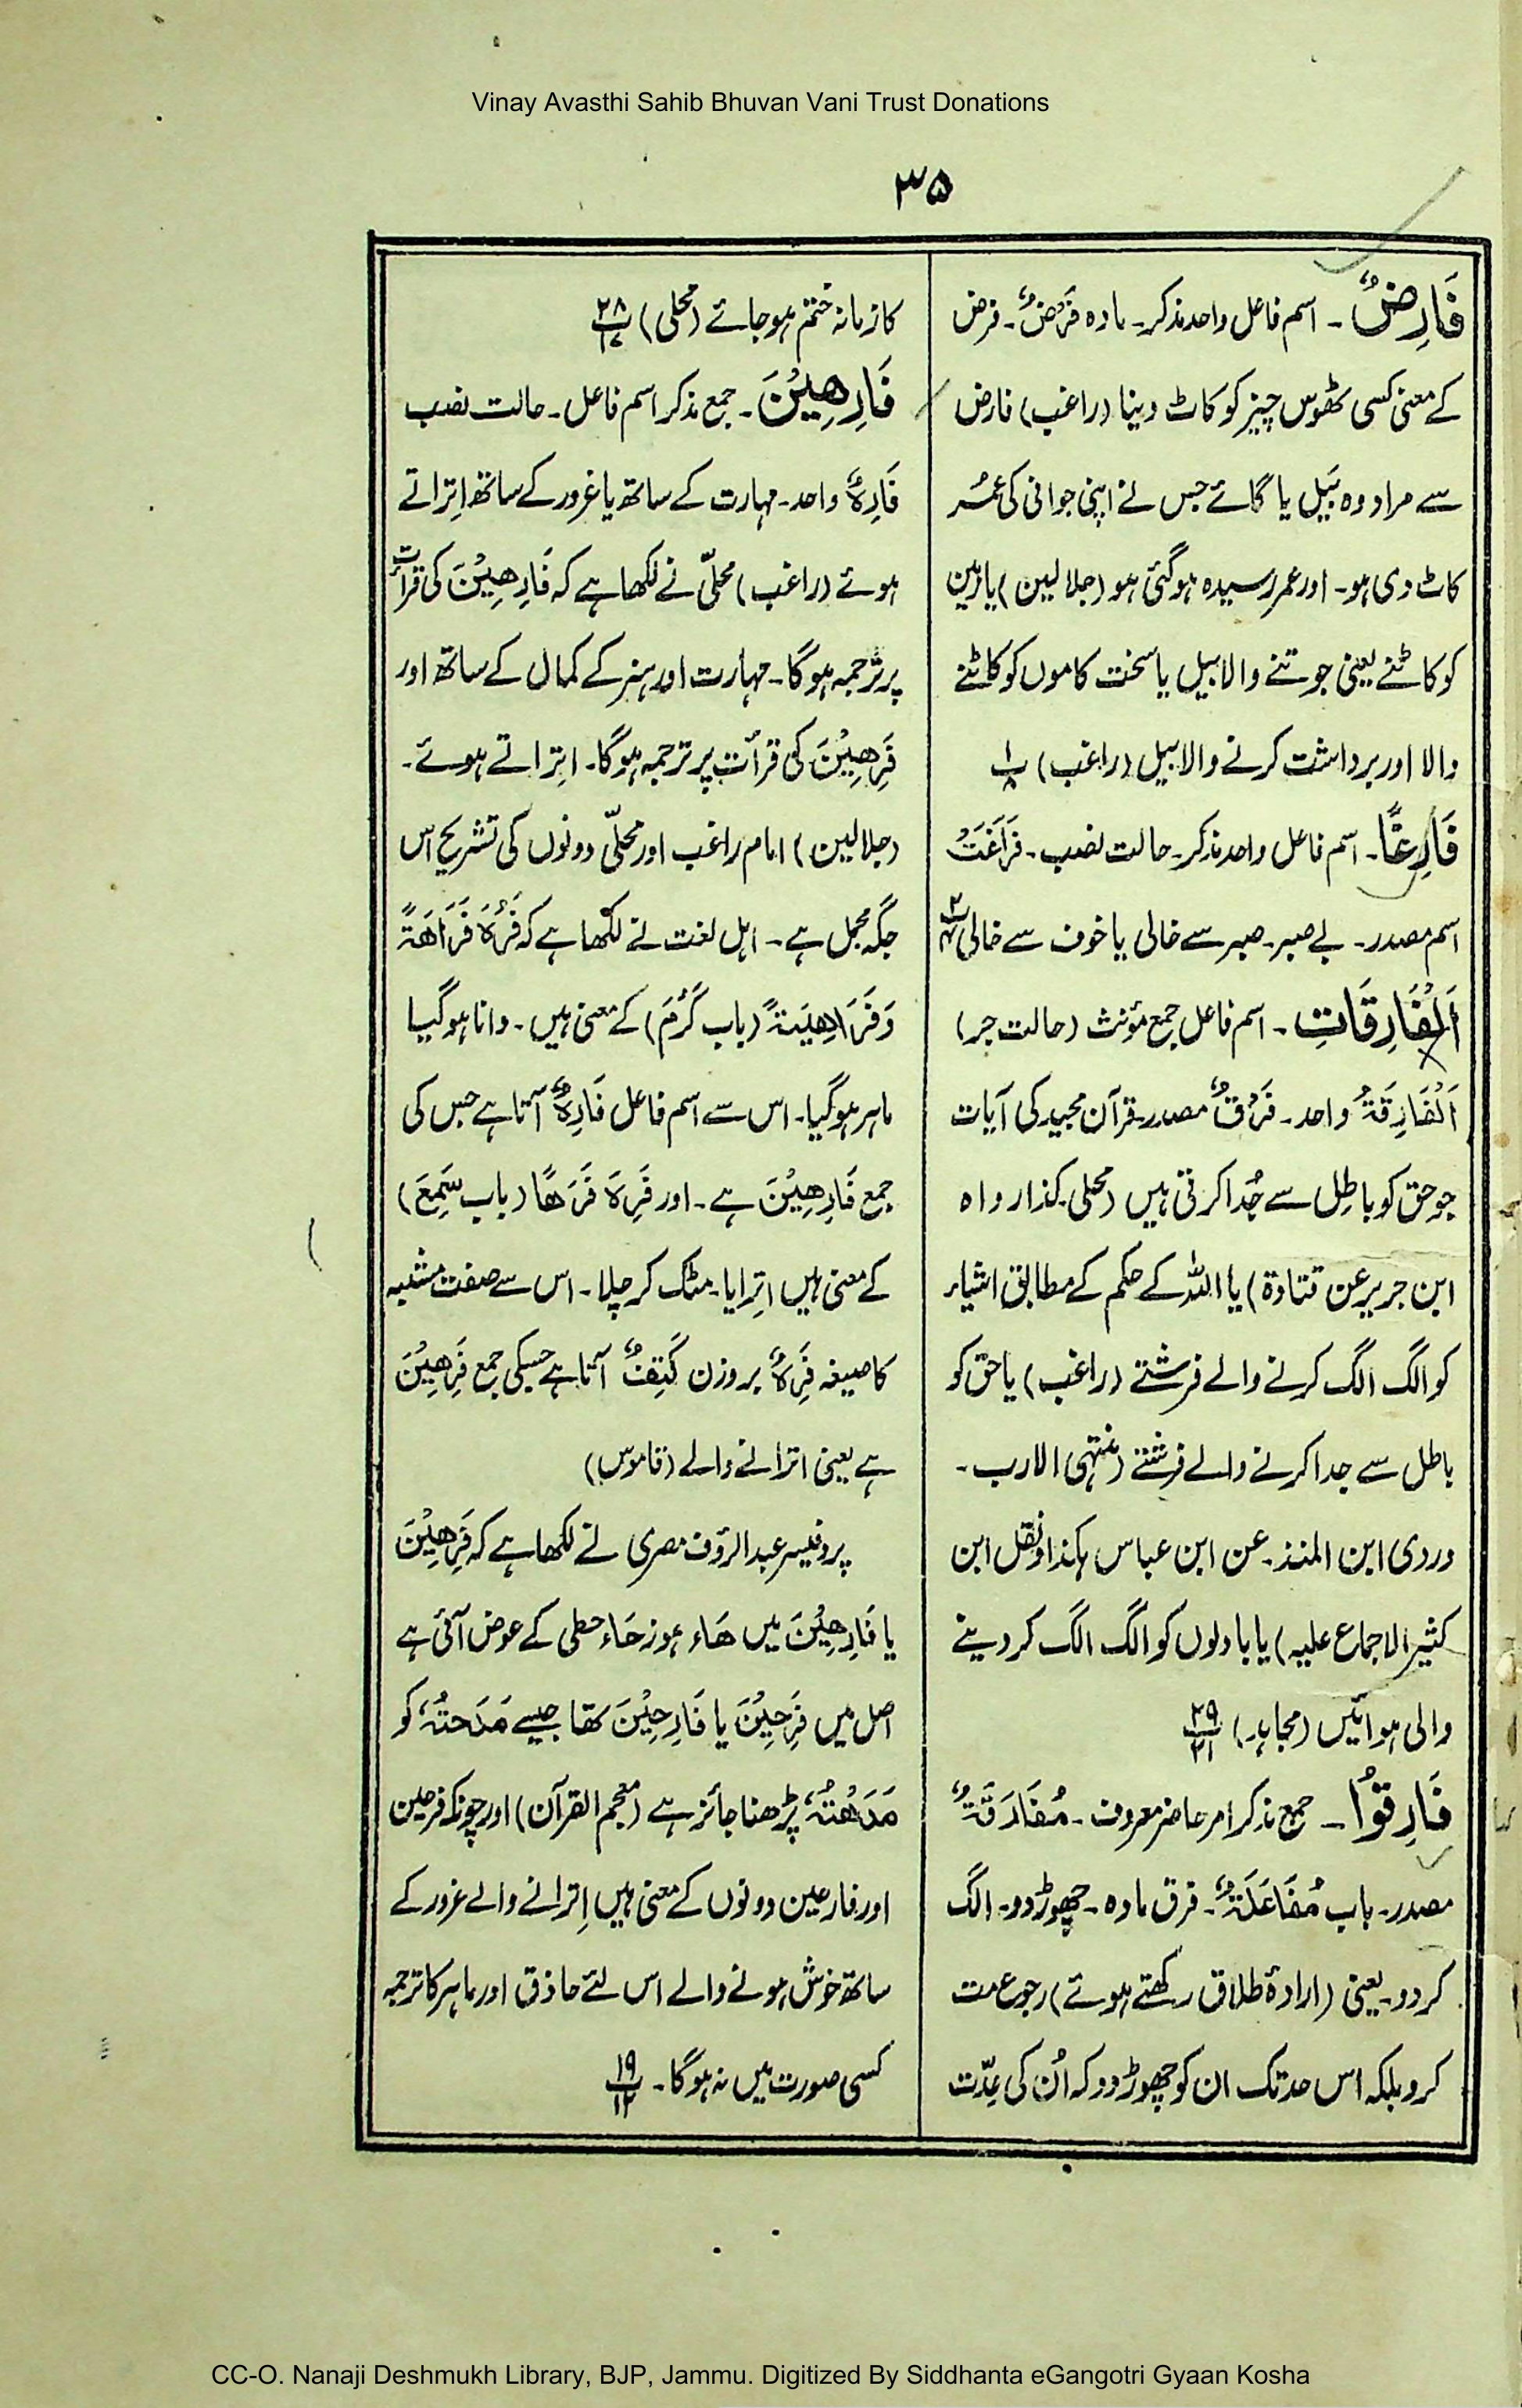 Vinay Avasthi Sahib Bhuvan Vani Trust Donations
۳۵
فَارِضٌ۔ اسم فاعل واحد مذکر۔ مادہ فَرْضٌ۔ فرض
کے معنیٰ کسی ٹھوس چیز کو کاٹ دینا (راغب) فارض
سے مراد وہ بَیل یا گائے جس نے اپنی جوانی کی عمُر
کاٹ دی ہو۔ اور عمر رسیدہ ہو گئی ہو (جلالین) یا زمین
کو کاٹنے یعنی جوتنے والا بیل یا سخت کاموں کو کاٹنے
والا اور برداشت کرنے والا بیل (راغب) پ۱/۸
فَارِغًا۔ اسم فاعل واحد مذکر۔ حالت نصب۔ فَرَاغَتٌ
اسم مصدر۔ بے صبر۔ صبر سے خالی یا خوف سے خالی
اَلْفَارِقَاتِ۔ اسم فاعل جمع مؤنث (حالت جر)
اَلْفَارِقَۃُ واحد۔ فَرْقٌ مصدر قرآن مجید کی آیات
جو حق کو باطِل سے جُدا کرتی ہیں (محلی۔ کذا رواہ
ابن جریر عن قتادۃ) یا اللہ کے حکم کے مطابق اشیاء
کو الگ الگ کرنے والے فرشتے (راغب) یا حق کو
باطل سے جدا کرنے والے فرشتے (منتہی الارب۔
وروی ابن المنذ۔ عن ابن عباس ہکذا ونقل ابن
کثیر الاجماع علیہ) یا بادلوں کو الگ الگ کر دینے
والی ہوائیں (مجاہد) پ۲۹/۲۱
فَارِقُوْا۔ جمع مذکر امر حاضر معروف۔ مُفَارَقَۃٌ
مصدر۔ باب مُفَاعَلَۃٌ۔ فرق مادہ۔ چھوڑ دو۔ الگ
کر دو۔ یعنی (ارادۂ طلاق رکھتے ہوئے) رجوع مت
کرو بلکہ اس حد تک ان کو چھوڑ دو کہ اُن کی عِدّت
کا زمانہ ختم ہو جائے (محلی) پ۲۸/۱۷
فَارِهِیْنَ۔ جمع مذکر اسم فاعل۔ حالت نصب
فَارِہٌ واحد۔ مہارت کے ساتھ یا غرور کے ساتھ اِتراتے
ہوئے (راغب) محلّی نے لکھا ہے کہ فَارِهِیْنَ کی قرأت
پر ترجمہ ہوگا۔ مہارت اور ہنر کے کمال کے ساتھ اور
فَرِهِیْنَ کی قرأت پر ترجمہ ہوگا۔ اِتراتے ہوئے۔
(جلالین) امام راغب اور محلّی دونوں کی تشریح اس
جگہ مجمل ہے۔ اہل لغت نے لکھا ہے کہ فَرُہَ فَرَاهَۃً
وَفَرَاهِیَۃً (باب کَرُمَ) کے معنیٰ ہیں۔ دانا ہو گیا
ماہر ہو گیا۔ اس سے اسم فاعل فَارِہٌ آتا ہے جس کی
جمع فَارِهِیْنَ ہے۔ اور فَرِہَ فَرَهًا (باب سَمِعَ)
کے معنیٰ ہیں اِترایا۔ مٹک کر چلا۔ اس سے صفت مشبہ
کا صیغہ فَرِہٌ بروزن کَتِفٌ آتا ہے جسکی جمع فَرِهِیْنَ
ہے یعنی اترانے والے (قاموس)
پروفیسر عبدالرؤف مصری نے لکھا ہے کہ فَرِهِیْنَ
یا فَارِهِیْنَ میں هَاء ہوز حَاء حطی کے عوض آئی ہے
اصل میں فَرِحِیْنَ یا فَارِحِیْنَ تھا جیسے مَدَحتُہٗ کو
مَدَهْتُہٗ پڑھنا جائز ہے (معجم القرآن) اور چونکہ فرحین
اور فارحین دونوں کے معنیٰ ہیں اِترانے والے غرور کے
ساتھ خوش ہونے والے اس لئے حاذق اور ماہر کا ترجمہ
کسی صورت میں نہ ہوگا۔ پ۱۹/۱۲
CC-O. Nanaji Deshmukh Library, BJP, Jammu. Digitized By Siddhanta eGangotri Gyaan Kosha